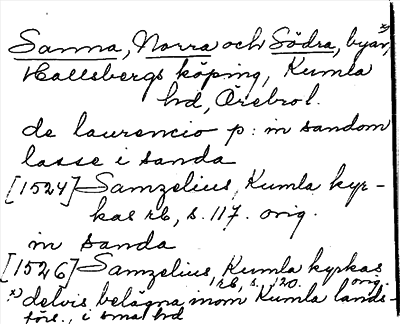 Sanna, Norra och Södra, byar, x)
Hallsbergs köping, Kumla
hd, Örebro l.
de laurencio p: in sandom
lasse i sanda
[1524] Samzelius, Kumla kyr-
kas rb, s. 117. orig.
in sanda
[1526] Samzelius, Kumla kyrkas
rb, s. 120. orig.
x) delvis belägna inom Kumla lands-
förs., i sma hd